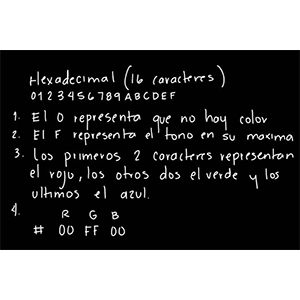 Hexadecimal (16 caracteres)
0123456789ABCDEF
1. El 0 representa que no hay color
2. El F representa el tono en su maxima
3. Los primeros 2 caracteres representan
el rojo, los otros dos el verde y los
ultimos el azul.
4.
R G B
# 00 FF 00